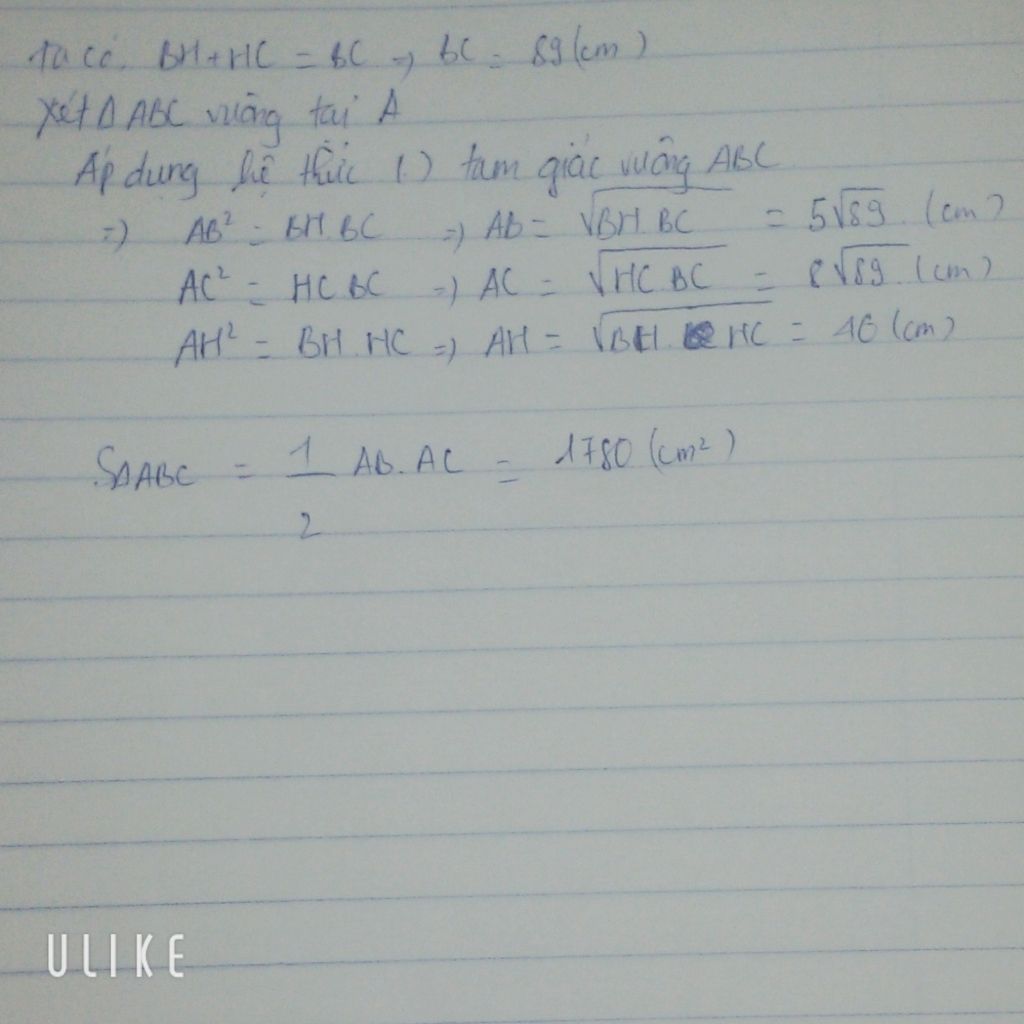 Ta có. BH+HC = BC => BC = 89 (cm)
Xét Δ ABC vuông tại A
Áp dụng hệ thức () tam giác vuông ABC
=) AB² = BH.BC =) AB = √BH.BC = 5√89. (cm)
AC² = HC BC =) AC = √HC BC = 8√89 (cm)
AH² = BH.HC =) AH = √BH. HC = 40 (cm)
SΔABC = 1/2 AB.AC = 1780 (cm²)
ULIKE